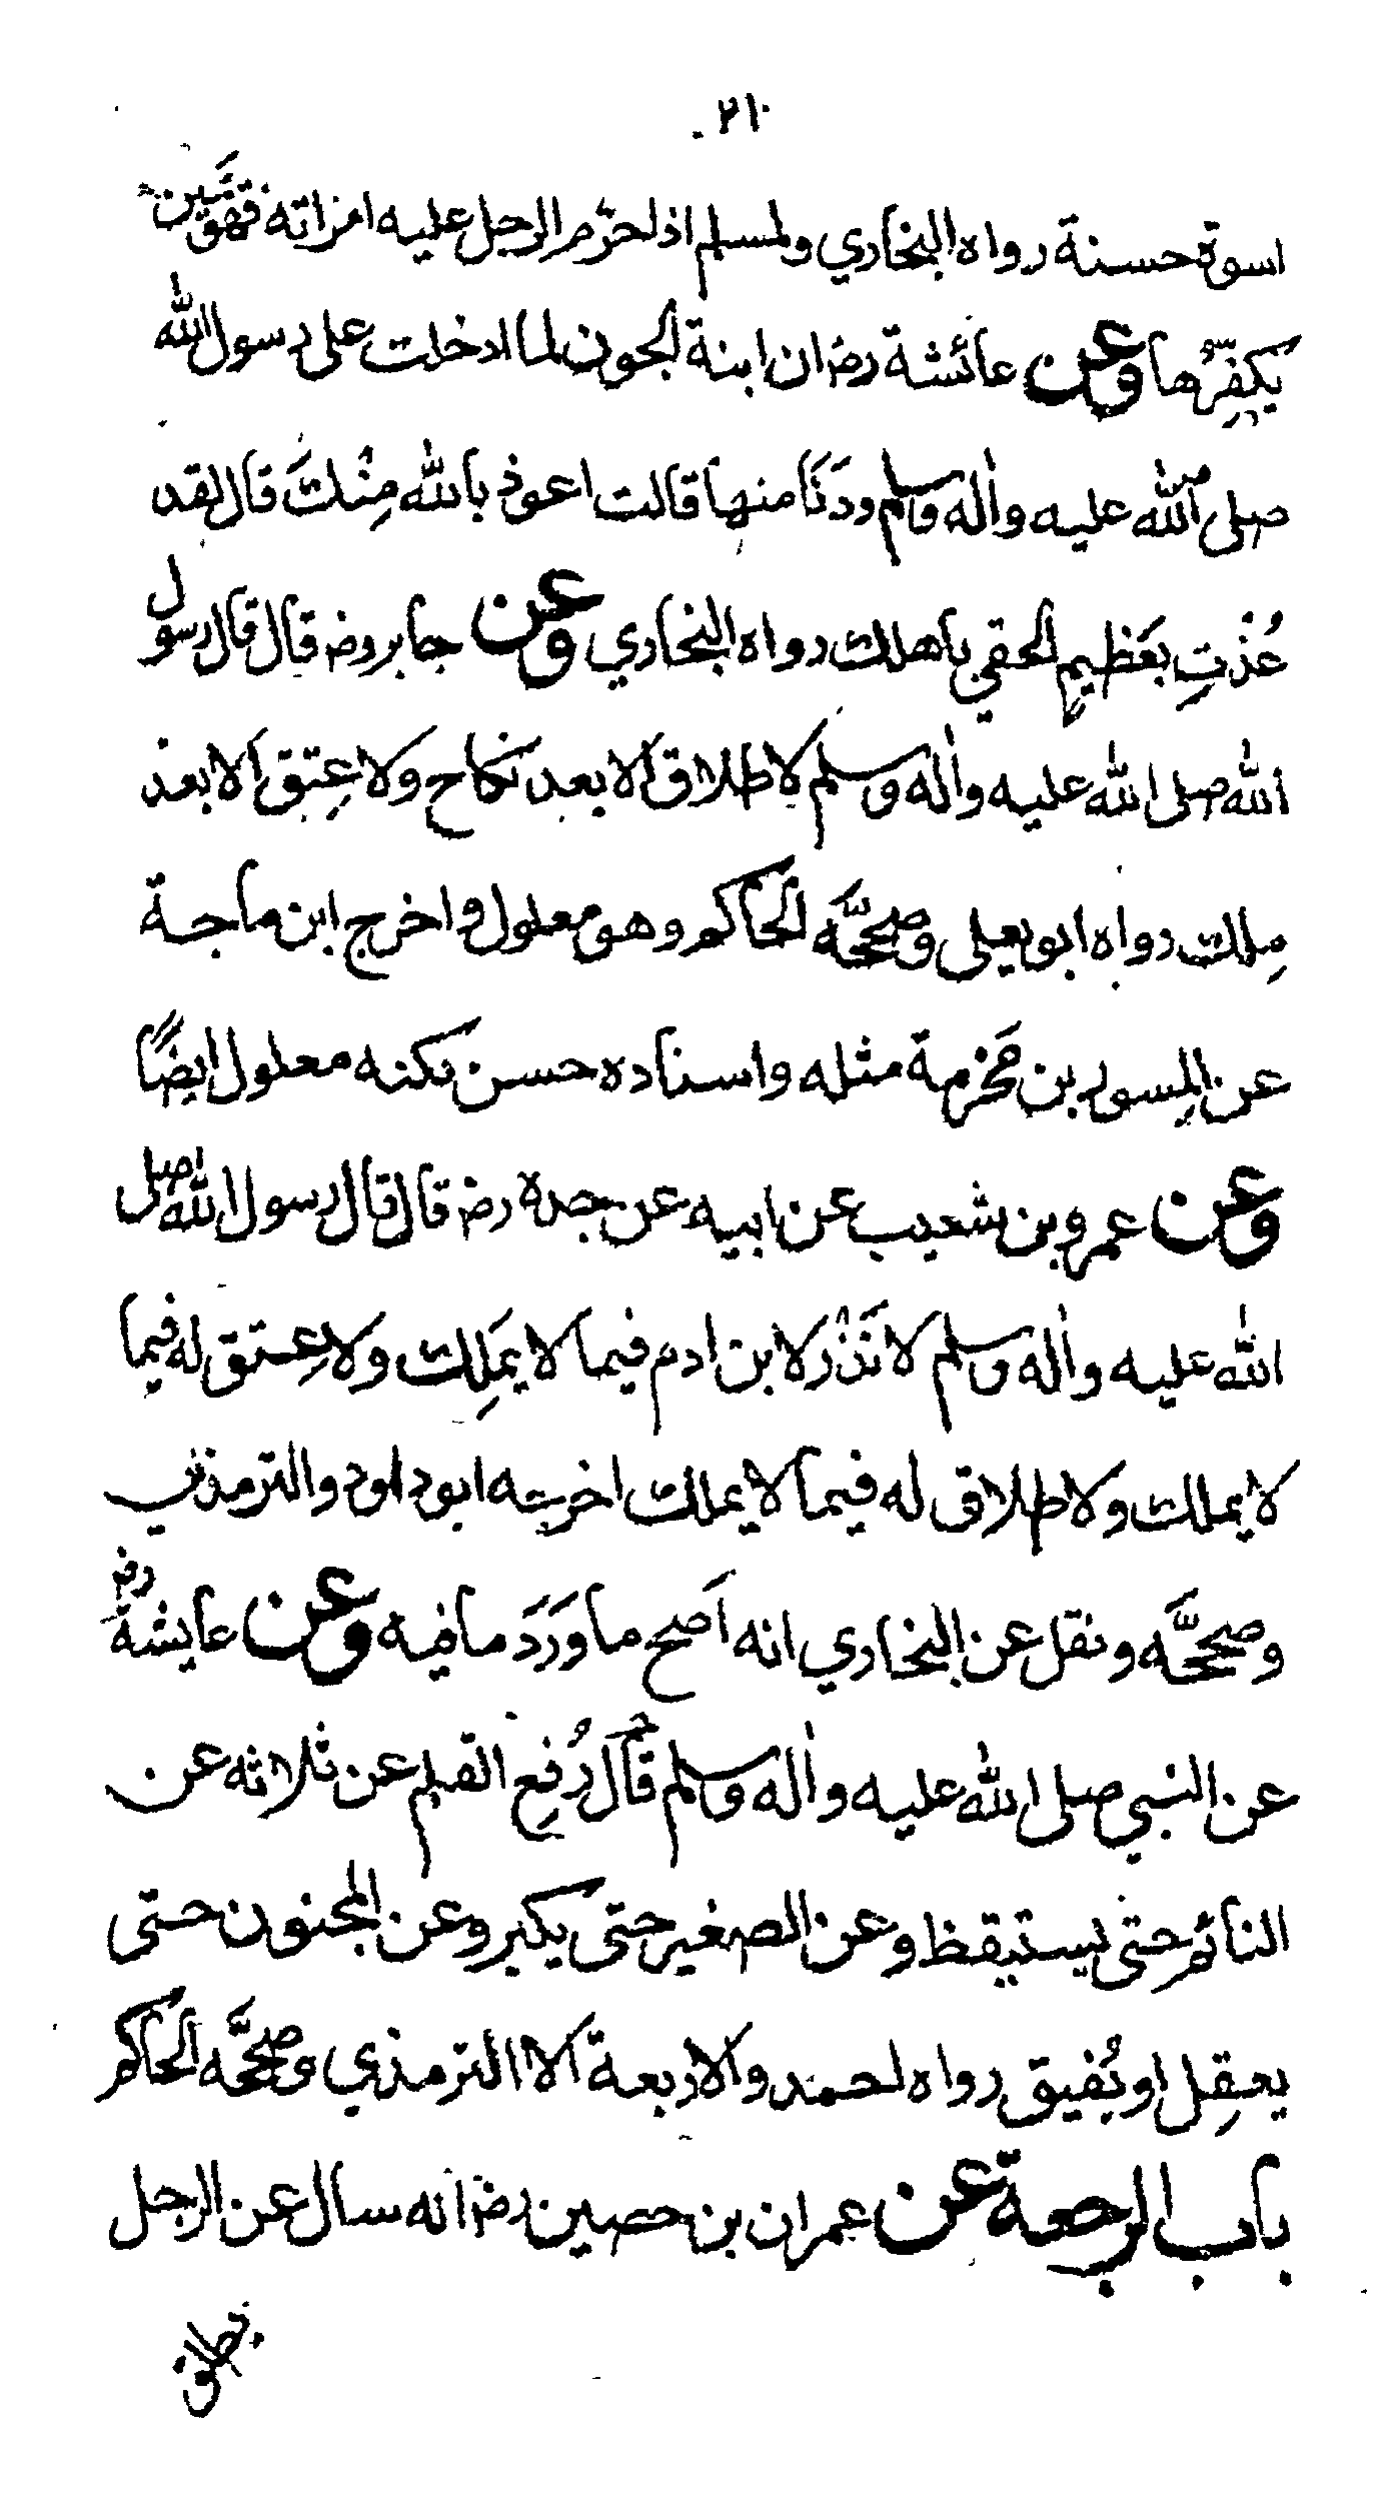 ٢١٠
اسوة حسنة رواه البخاري ولمسلم اذا حرّم الرجل عليه امراته فهو يمين
يكفِّرُها وعن عائشة رض ان ابنة الجون لما ادخلت على رسول الله
صلى الله عليه واٰله وسلم ودَنَا منها قالت اعوذ بالله مِنْكَ قال لقد
عُذْتِ بعَظيمٍ الحقي باهلك رواه البخاري وعن جابر رض قال قال رسول
الله صلى الله عليه واٰله وسلم لا طلاق الا بعد نكاح ولا عِتق الا بعد
مِلك رواه ابو يعلى وصحّحَه الحاكم وهو معلول واخرج ابن ماجة
عن المِسور بن مَخْرمة مثله واسناده حسن لكنه معلول ايضًا
وعن عمرو بن شعيب عن ابيه عن جده رض قال قال رسول الله صلى
الله عليه واٰله وسلم لا نَذْرَ لابن ادم فيما لا يَملِك ولا عِتق له فيما
لا يملك ولا طلاق له فيما لا يملك اخرجه ابو داود والترمذي
وصحّحَه ونقل عن البخاري انه اَصح ما وَرَدَ ما فيه وعن عايشة رض
عن النبي صلى الله عليه واٰله وسلم قال رُفِع القلم عن ثلاثه عن
النائم حتى يستيقظ وعن الصغير حتى يكبر وعن المجنون حتى
يعقِل او يُفيق رواه احمد والاربعة الا الترمذي وصحّحَه الحاكم
باب الرجعة عن عمران بن حصين رض انه سال عن الرجل